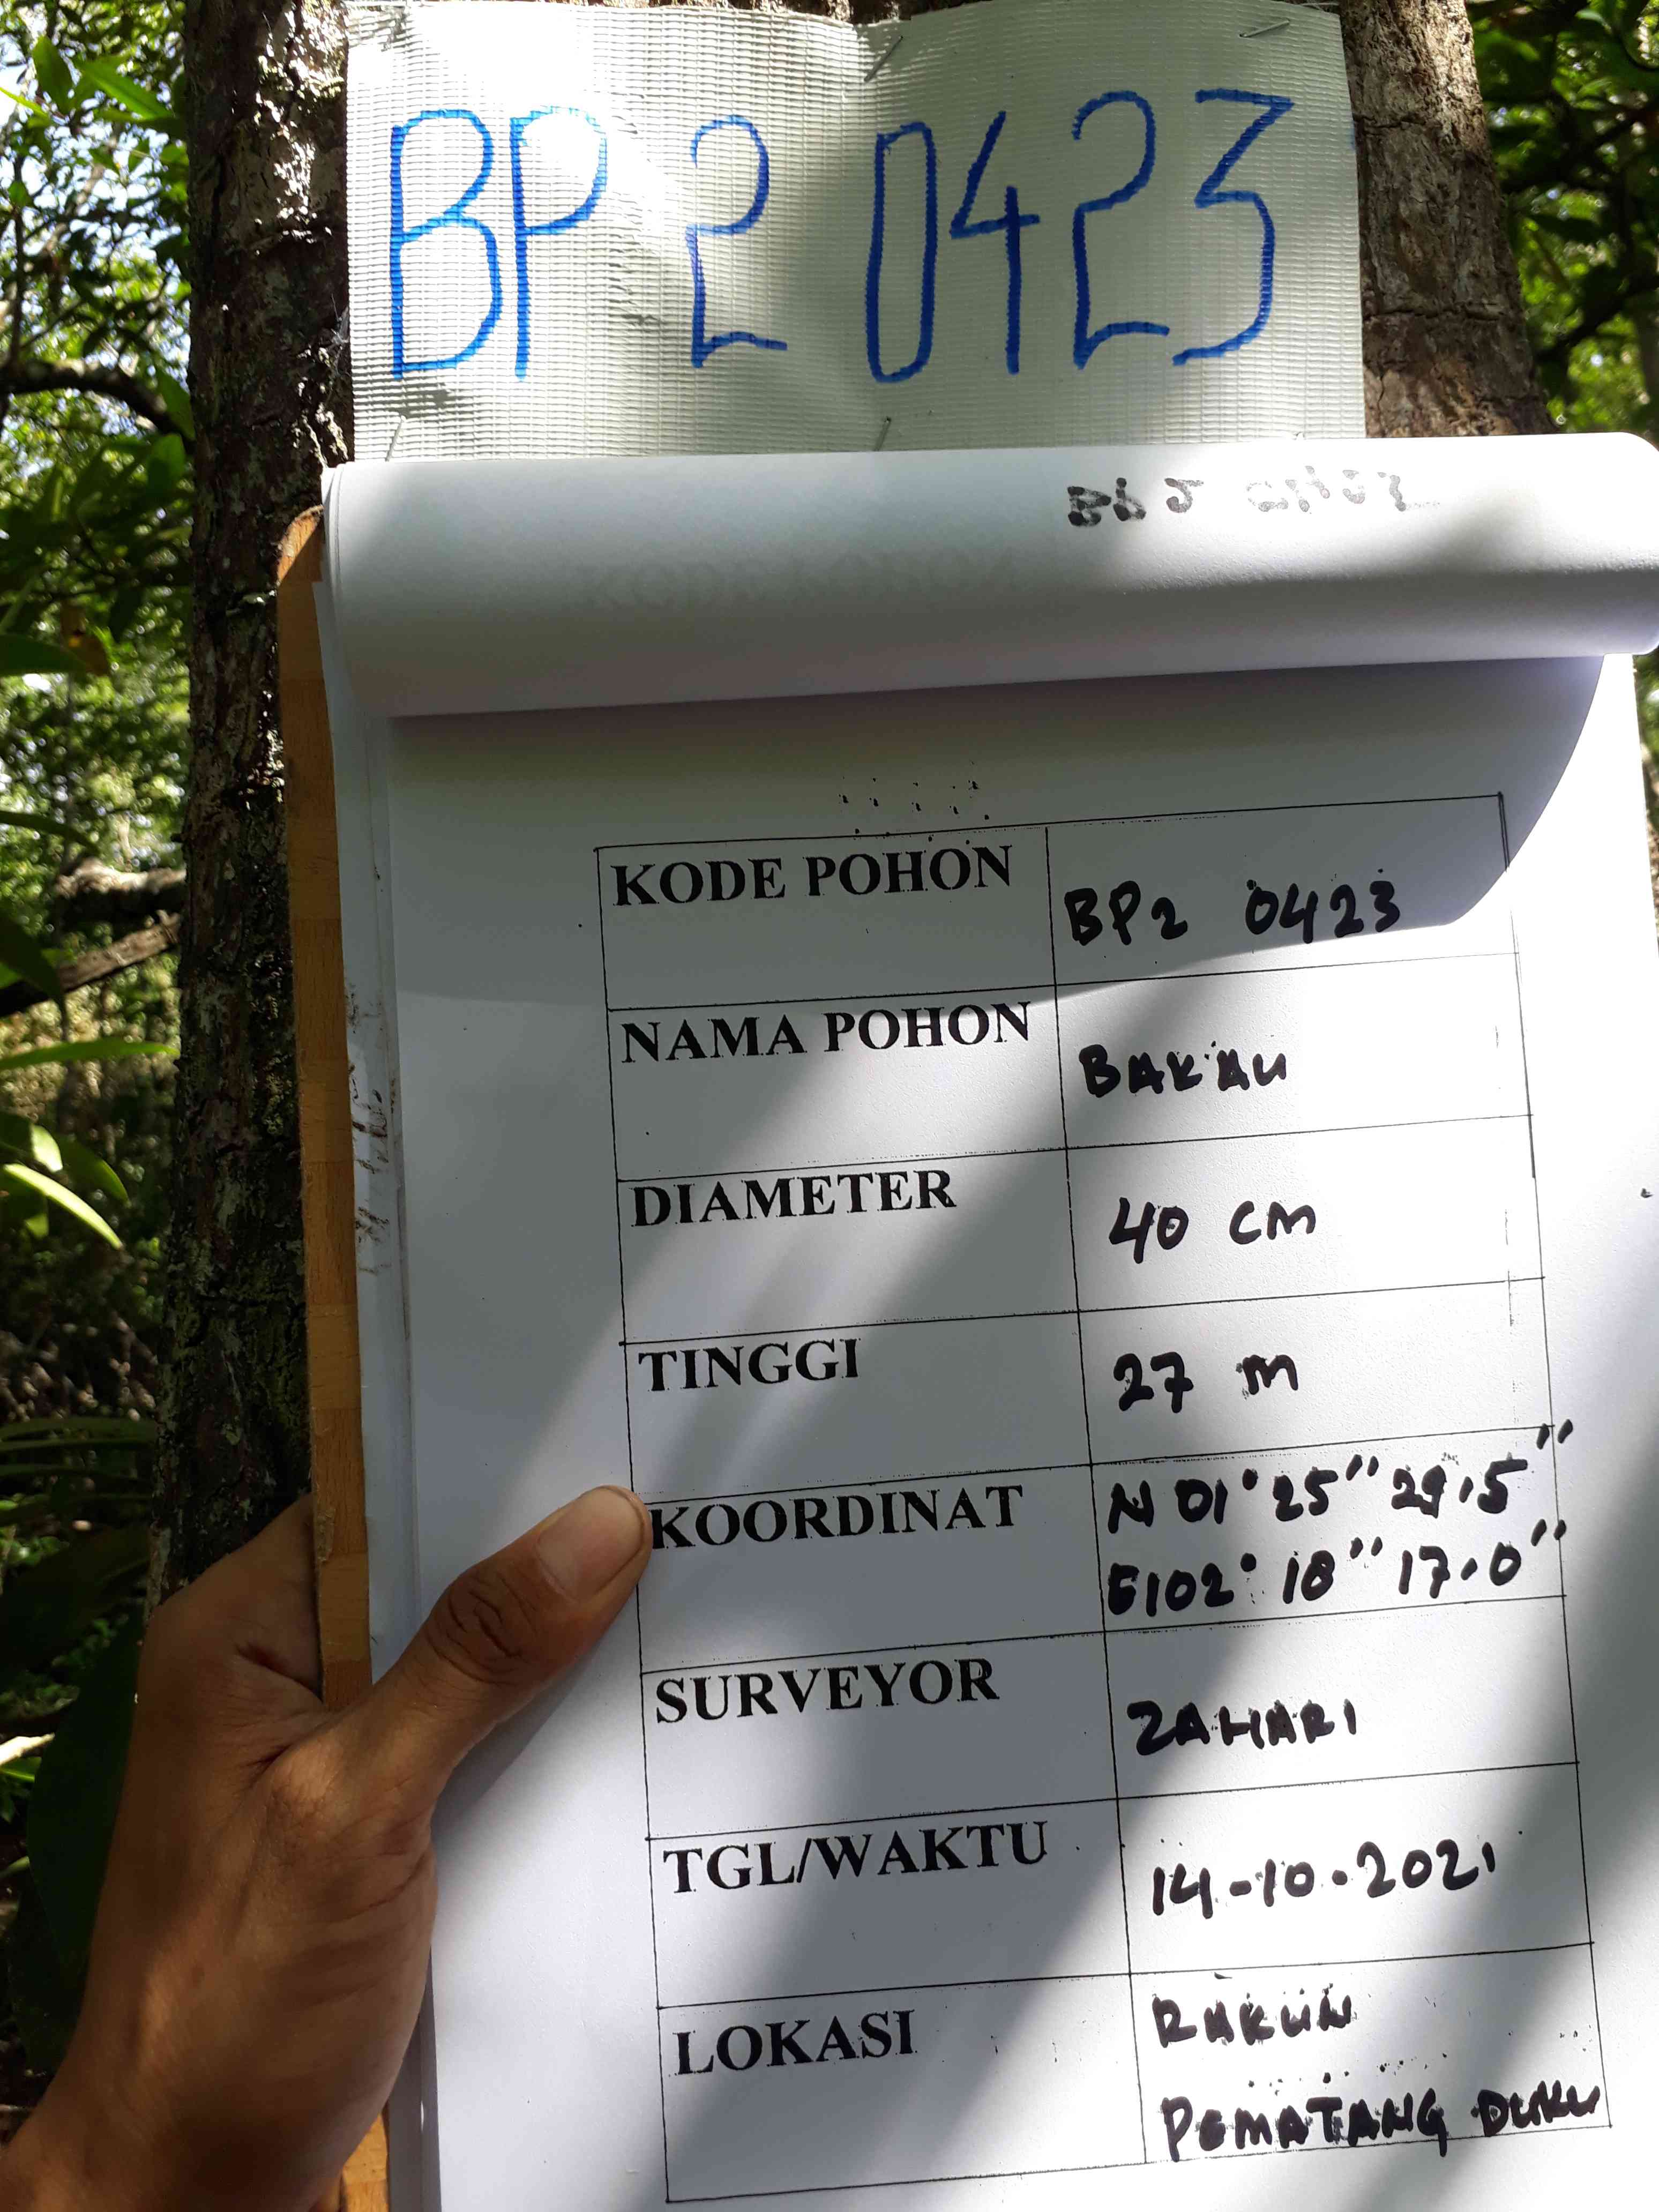 BP 2 0423
KODE POHON BP2 0423
NAMA POHON BAKAU
DIAMETER 40 cm
TINGGI 27 m
KOORDINAT N 01° 25" 29,5"
E102° 18" 17.0"
SURVEYOR ZAHARI
TGL/WAKTU 14-10-2021
LOKASI
PEMATANG DUKU